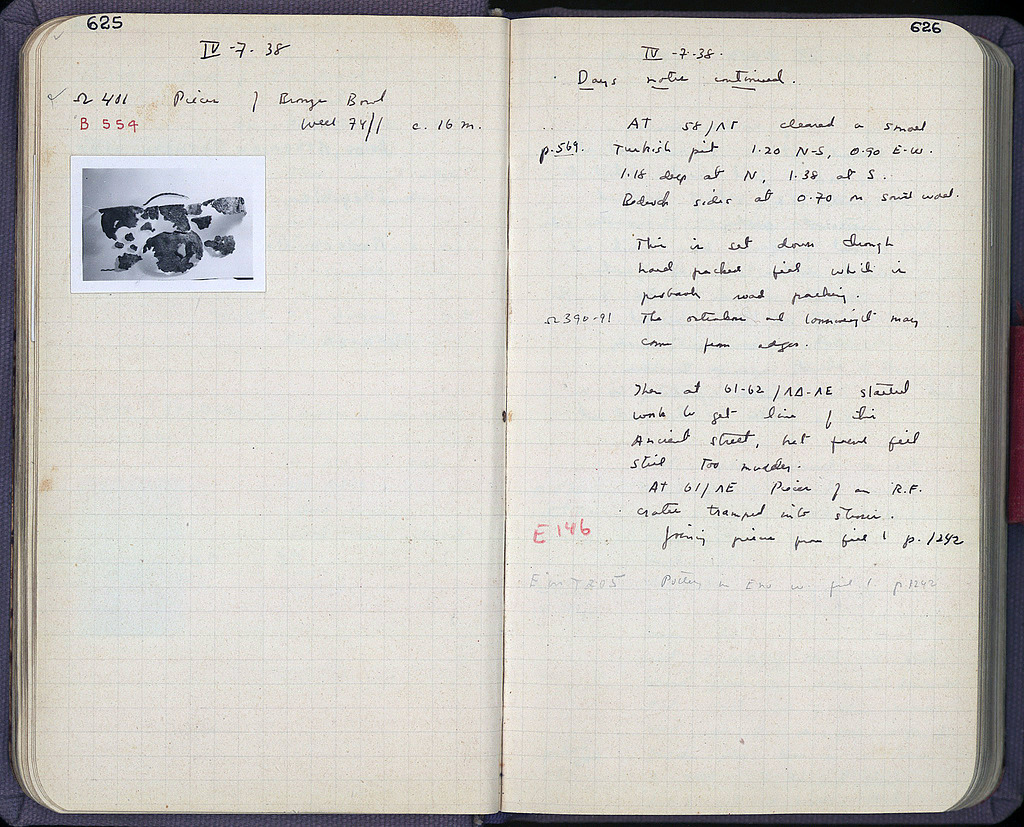 625
IV -7. 38
Ω 401 Pieces of Bronze Bowl
B 554 Well 74/1 c. 16 m.
626
IV -7-38.
Days notes continued.
At 58/ΛΓ cleared a small
p.569. Turkish pit 1.20 N-S, 0.90 E-W.
1.18 deep at N, 1.38 at S.
Bedrock sides at 0.70 on south
This is set down through
hard packed fill which is
perhaps road packing.
Ω390-91 The ostrakon and loomweight may
come from edges.
Then at 61-62/ΛΔ-ΛΕ started
work to get line of this
Ancient street, but found fill
still too muddy.
At 61/ΛΕ Pieces of an R.F.
crater tramped into
E 146 Joining pieces from fill 1 p. 1242
Pottery in fill 1. p.1242